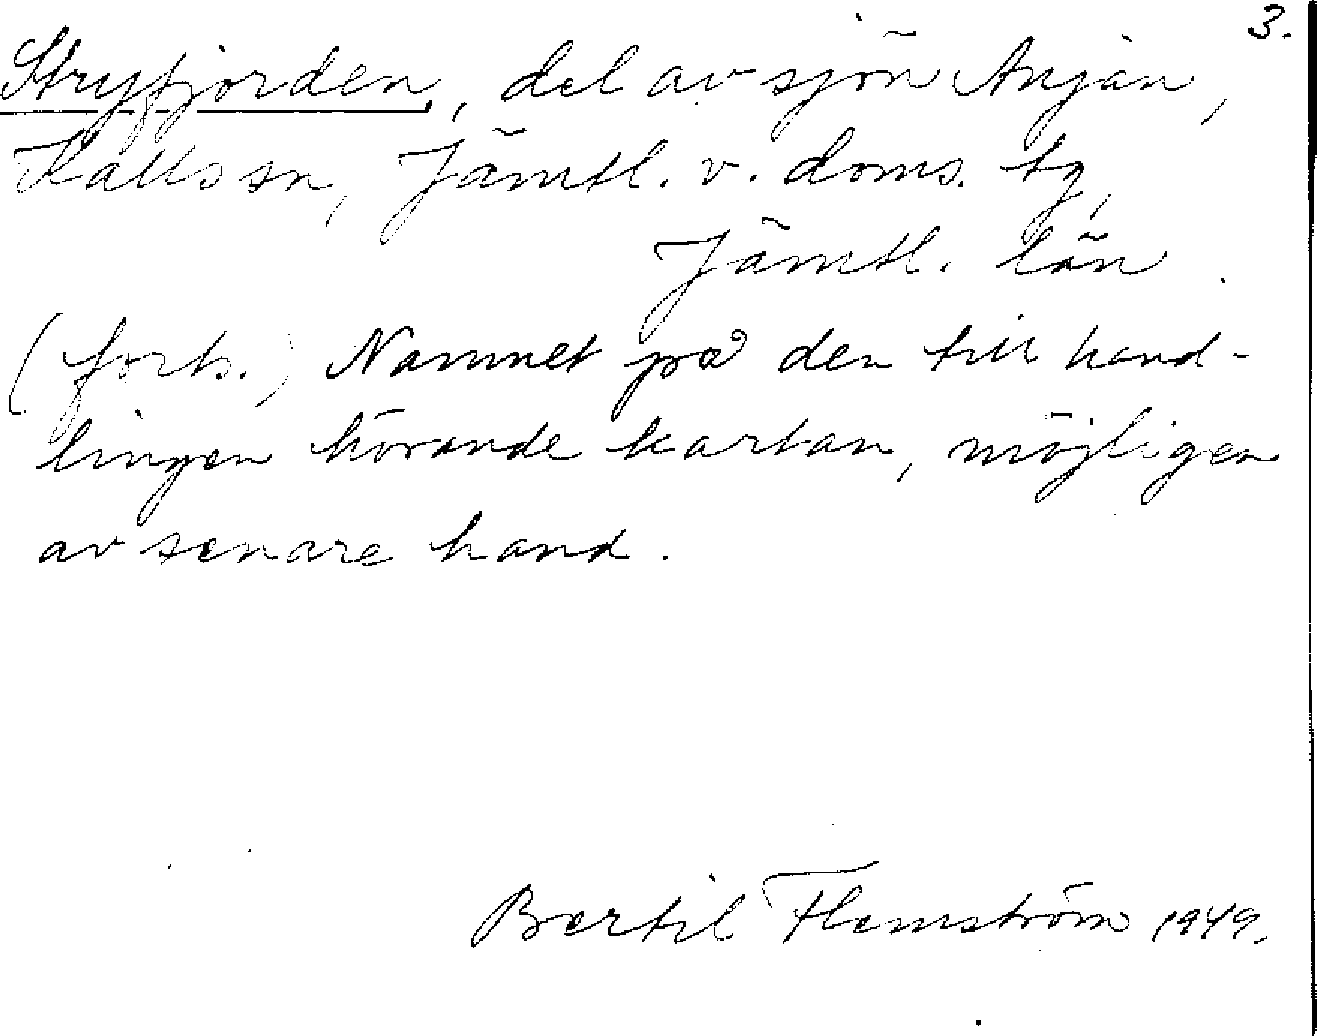 3.
Stryfjorden, del av sjön Anjan,
Kalls sn, Jämtl. v. doms. tg,
Jämtl. län.
(forts.) Namnet på den till hand-
lingen hörande kartan, möjligen
av senare hand.
Bertil Flemström 1949.